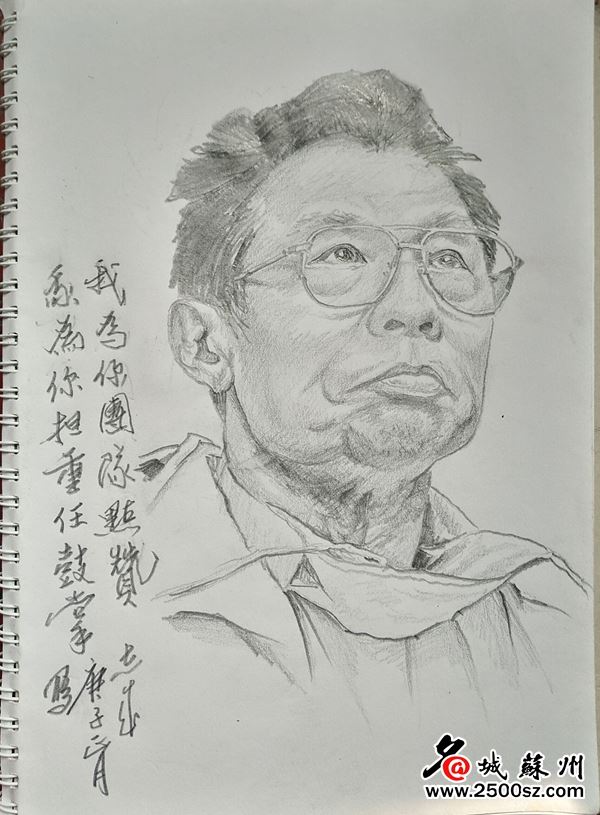 我為你團隊點贊
為你担重任鼓掌
庚子正月
名城蘇州
www.2500sz.com